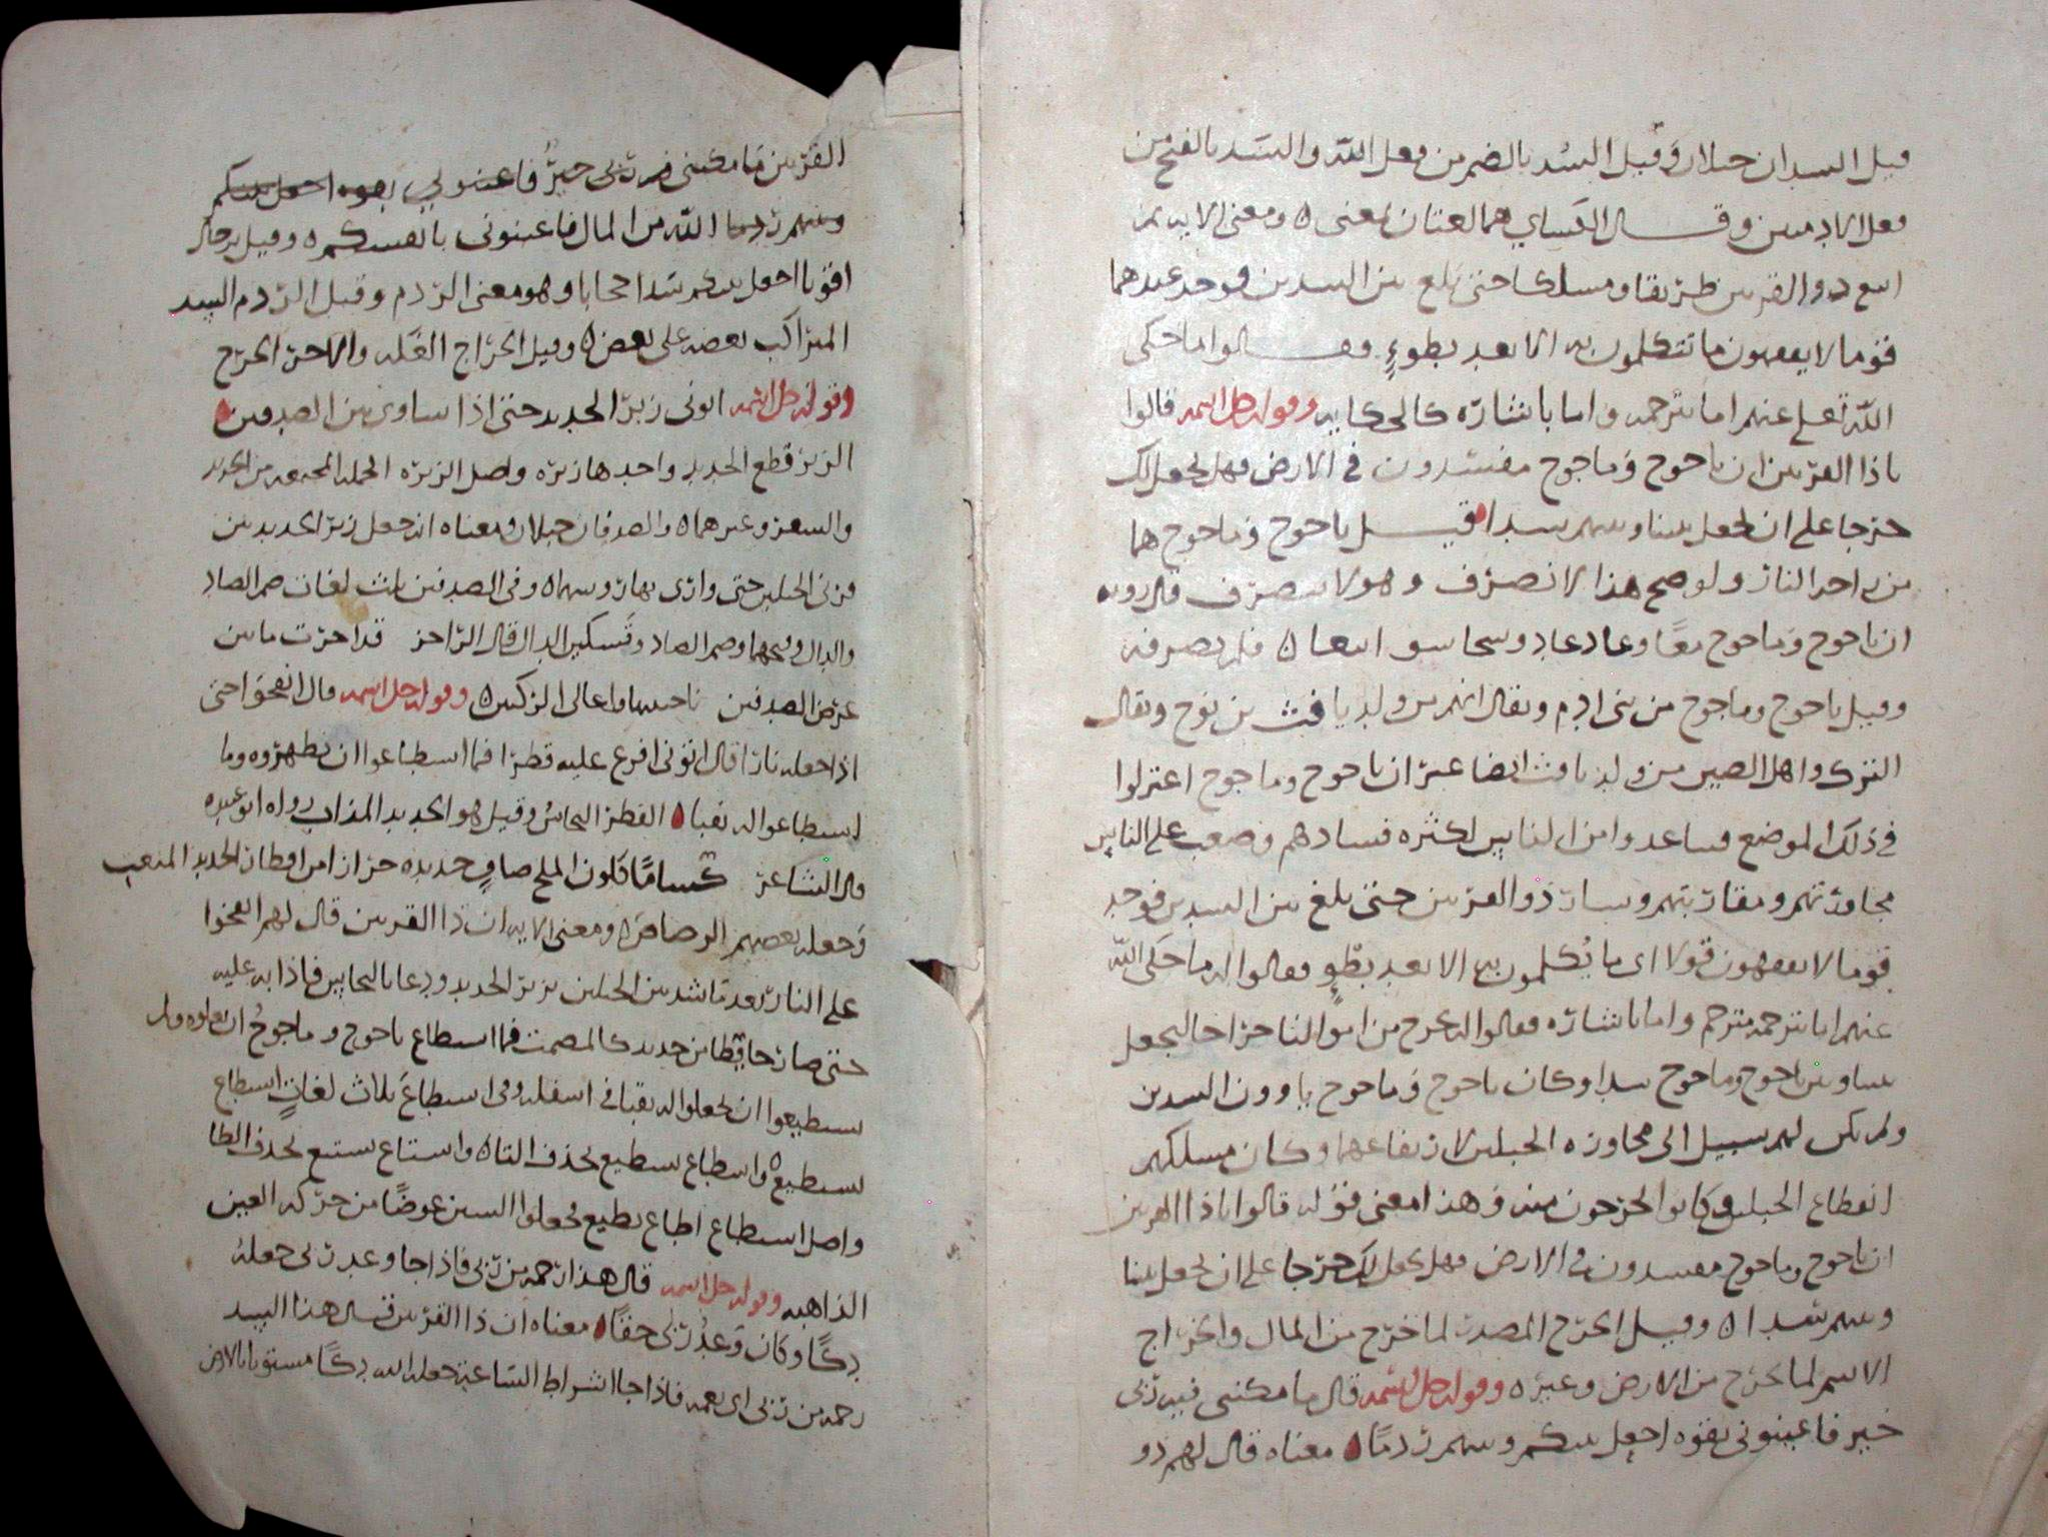 قيل السدان جبلان وقيل السُد بالضم من فعل الله والسَد بالفتح من
فعل الادميين وقال الكساي هما لغتان بمعنى ومعنى الايه ثم
اتبع ذو القرنين طريقا ومسلكا حتى بلغ بين السدين فوجد عندهما
قوما لا يفقهون ما تتكلمون به الا بعد بطوءٍ فقالوا ما حكى
الله تعلى عنهم اما بترجمه واما باشاره كالحكايه وقوله جل اسمه قالوا
ياذا القرنين ان ياجوج وماجوج مفسدون في الارض فهل نجعل لك
خرجا على ان تجعل بيننا وبينهم سدا قيل ياجوج وماجوج هما
من اجم النار ولو صح هذا لانصرف وهو لا ينصرف قال روبه
ان ياجوج وماجوج معًا وعاد عاد فلم يصرفه
وقيل ياجوج وماجوج من بني ادم ويقال انهم من ولد يافث بن نوح ويقال
الترك واهل الصين من ولد يافث ايضا غير ان ياجوج وماجوج اعتزلوا
في ذلك الموضع فتباعدوا من الناس لكثره فسادهم وصعب على الناس
مجاورتهم ومقاربتهم وسار ذو القرنين حتى بلغ بين السدين فوجد
قوما لا يفقهون قولا اى ما يُكلمون به الا بعد بطوٍ فقالوا له ما حكى الله
عنهم اما بترجمه مترجم واما باشاره فقالوا له نخرج من اموالنا خراجا لتجعل
بيننا وبين ياجوج وماجوج سدا وكان ياجوج وماجوج ياوون السدين
ولم يكن لهم سبيل الى مجاوزه الجبلين لارتفاعهما وكان مسلكهم
انقطاع الجبلين وكانوا يخرجون منه وهذا معنى قوله قالوا ياذا القرنين
ان ياجوج وماجوج مفسدون في الارض فهل نجعل لك خرجا على ان تجعل بيننا
وبينهم سدا وقيل الخرج المصدر لما خرج من المال والخراج
الاسم لما يخرج من الارض وغيره وقوله جل اسمه قال ما مكنني فيه ربي
خير فاعينوني بقوه اجعل بينكم وبينهم ردمًا معناه قال لهم ذو
القرنين ما مكنني فيه ربي خيرٌ فاعينوني بقوه اجعل بينكم
وبينهم ردما الله من المال فاعينوني بانفسكم وقيل برجال
اقويا اجعل بينكم سدا حجابا وهو معنى الردم وقيل الردم السد
المتراكب بعضه على بعض وقيل الخراج الغله والاجر الخرج
وقوله جل اسمه اتوني زبر الحديد حتى اذا ساوى بين الصدفين
الزبر قطع الحديد واحدها زبره واصل الزبره الجمله المجتمعه من الحديد
والشعر وغيرهما والصدفان جبلان ومعناه انه جعل زبر الحديد بين
قرني الجبلين حتى وازى بها رؤسهما وفي الصدفين ثلث لغات ضم الصاد
والدال وفتحهما وضم الصاد وتسكين الدال قال الراجز قد اخذت ما بين
عرض الصدفين ناحيتيها واعالي الركنين وقوله جل اسمه قال انفخوا حتى
اذا جعله نارا قال اتوني افرغ عليه قطرا فما اسطاعوا ان يظهروه وما
استطاعوا له نقبا القطر النحاس وقيل هو الحديد المذاب رواه ابو عبيده
قال الشاعر حسامًا كلون الملح صافٍ حديده جراز امن اقطار الحديد المنعت
وجعله بعضهم الرصاص ومعنى الايه ان ذا القرنين قال لهم انفخوا
على النار بعد ما سد بين الجبلين بزبر الحديد ودعا بالنحاس فاذابه عليه
حتى صار حايطا من حديد كالمصمت فما اسطاع ياجوج وماجوج ان يعلوه ولم
يستطيعوا ان يجعلوا له نقبا في اسفله وفي اسطاع ثلاث لغاتٍ استطاع
يستطيع واسطاع يسطيع بحذف التا واستاع يستيع بحذف الطا
واصل اسطاع اطاع يطيع فجعلوا السين عوضًا من حركه العين
الذاهبه وقوله جل اسمه قال هذا رحمه من ربي فاذا جا وعد ربي جعله
دكًا وكان وعدُ ربي حقًا معناه ان ذا القرنين قال هذا السد
رحمه من ربي اى نعمه فاذا جا اشراط الساعه جعله الله دكًا مستويا بالارض